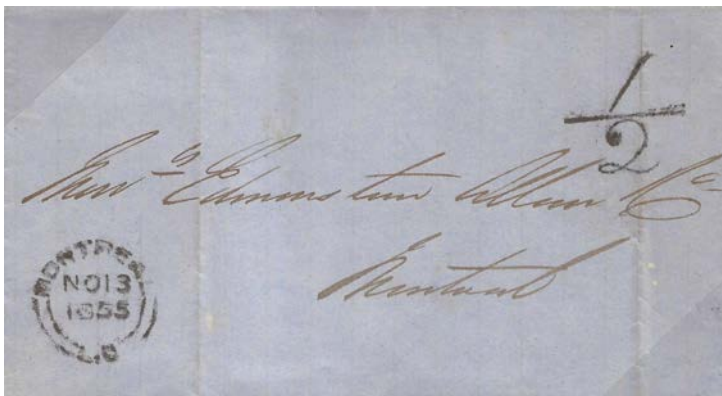 1/2
Mess.rs Edmonstone Allan & Co
Montreal
MONTREAL
NO 13
1855
L.C